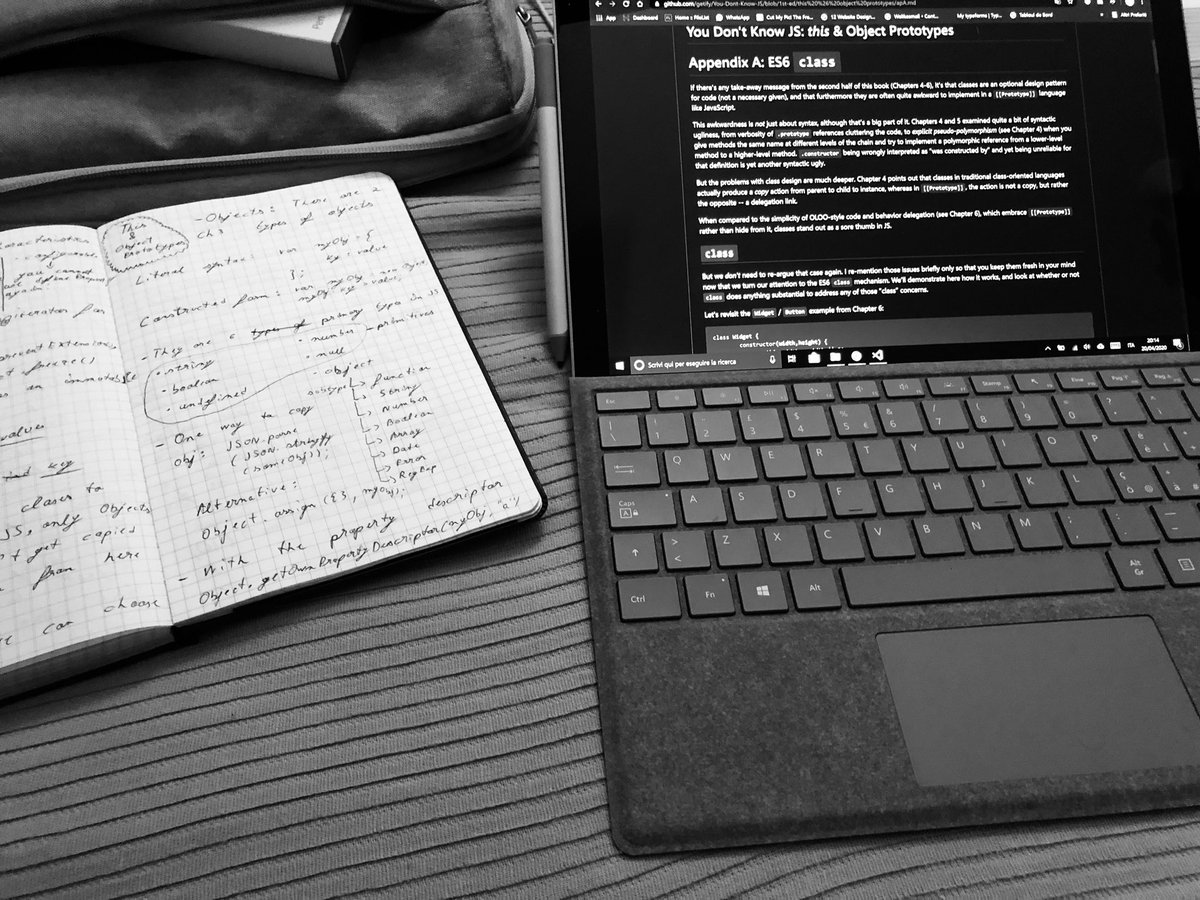 github.com/getify/You-Dont-Know-JS/blob/1st-ed/this%20%26%20object%20prototypes/apA.md
App
Dashboard
Home : FileList
WhatsApp
Cut My Pid The Fre...
12 Website Design...
My typeforms | Typ...
Altri Preferiti
You Don't Know JS: this & Object Prototypes
Appendix A: ES6 class
If there's any take-away message from the second half of this book (Chapters 4-6), it's that classes are an optional design pattern
for code (not a necessary given), and that furthermore they are often quite awkward to implement in a [[Prototype]] language
like JavaScript.
This awkwardness is not just about syntax, although that's a big part of it. Chapters 4 and 5 examined quite a bit of syntactic
ugliness, from verbosity of .prototype references cluttering the code, to explicit pseudo-polymorphism (see Chapter 4) when you
give methods the same name at different levels of the chain and try to implement a polymorphic reference from a lower-level
method to a higher-level method. .constructor being wrongly interpreted as "was constructed by" and yet being unreliable for
that definition is yet another syntactic ugly.
But the problems with class design are much deeper. Chapter 4 points out that classes in traditional class-oriented languages
actually produce a copy action from parent to child to instance, whereas in [[Prototype]], the action is not a copy, but rather
the opposite -- a delegation link.
When compared to the simplicity of OLOO-style code and behavior delegation (see Chapter 6), which embrace [[Prototype]]
rather than hide from it, classes stand out as a sore thumb in JS.
class
But we don't need to re-argue that case again. I re-mention those issues briefly only so that you keep them fresh in your mind
now that we turn our attention to the ES6 class mechanism. We'll demonstrate here how it works, and look at whether or not
class does anything substantial to address any of those "class" concerns.
Let's revisit the Widget / Button example from Chapter 6:
class Widget {
constructor(width,height) {
Scrivi qui per eseguire la ricerca
ITA
20:14
20/04/2020
you cannot
again
an immutable
values
closer to
JS, only Objects
get copied
from here
can choose
This
&
Object
Prototypes
- Objects: There are 2
Ch3 types of objects
Literal syntax: var myObj = {
key: value
};
Constructed form: var myObj = new Object
myObj.key = value;
- They are 6 types of primary types in JS
• string
• number
- primitives
• boolean
• null
• undefined
• object
subtypes
Function
String
Number
Boolean
Array
Date
Error
RegExp
- One way to copy
obj: JSON.parse
(JSON.stringify
(someObj));
Alternative:
Object.assign({}, myObj);
- With the property descriptor
Object.getOwnPropertyDescriptor(myObj, "a")
Esc
Stamp
Fine
Pag↑
1 2 3 4 5 6 7 8 9 0
Q W E R T Y U I O P è
Caps
A S D F G H J K L ç
> <
Z X C V B N M
Ctrl Fn Alt Alt Gr